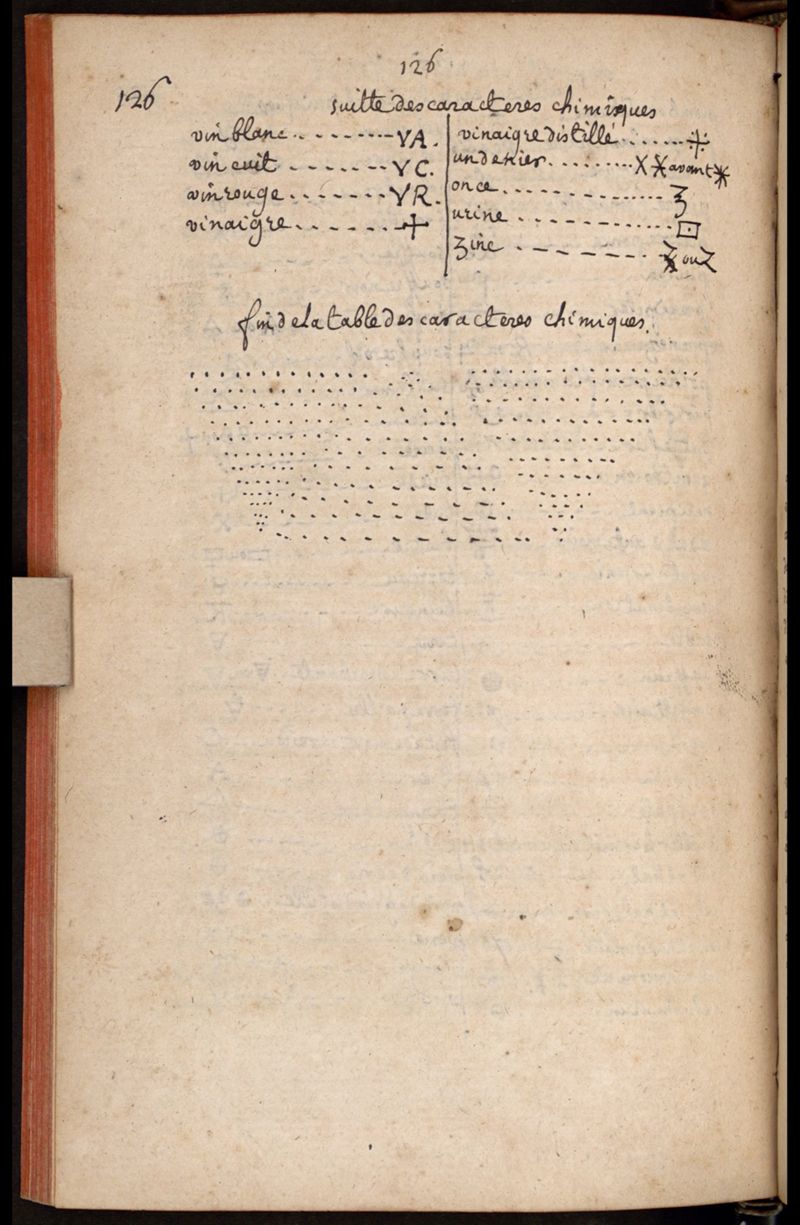 126
126
suitte des caracteres chimiques
vin blanc. . - - - - - - - VA.
vin cuit - - - - - - - VC.
vin rouge. - - - - - - - VR.
vinaigre. . - - - - -
vinaigre distillé. . . . . .
un denier. . . . . . . . .
once. . - - - - - - - - - -
urine . . - - - - - - . . . .
zinc . - - - - - - - ou
fin de la table des caracteres chimiques.